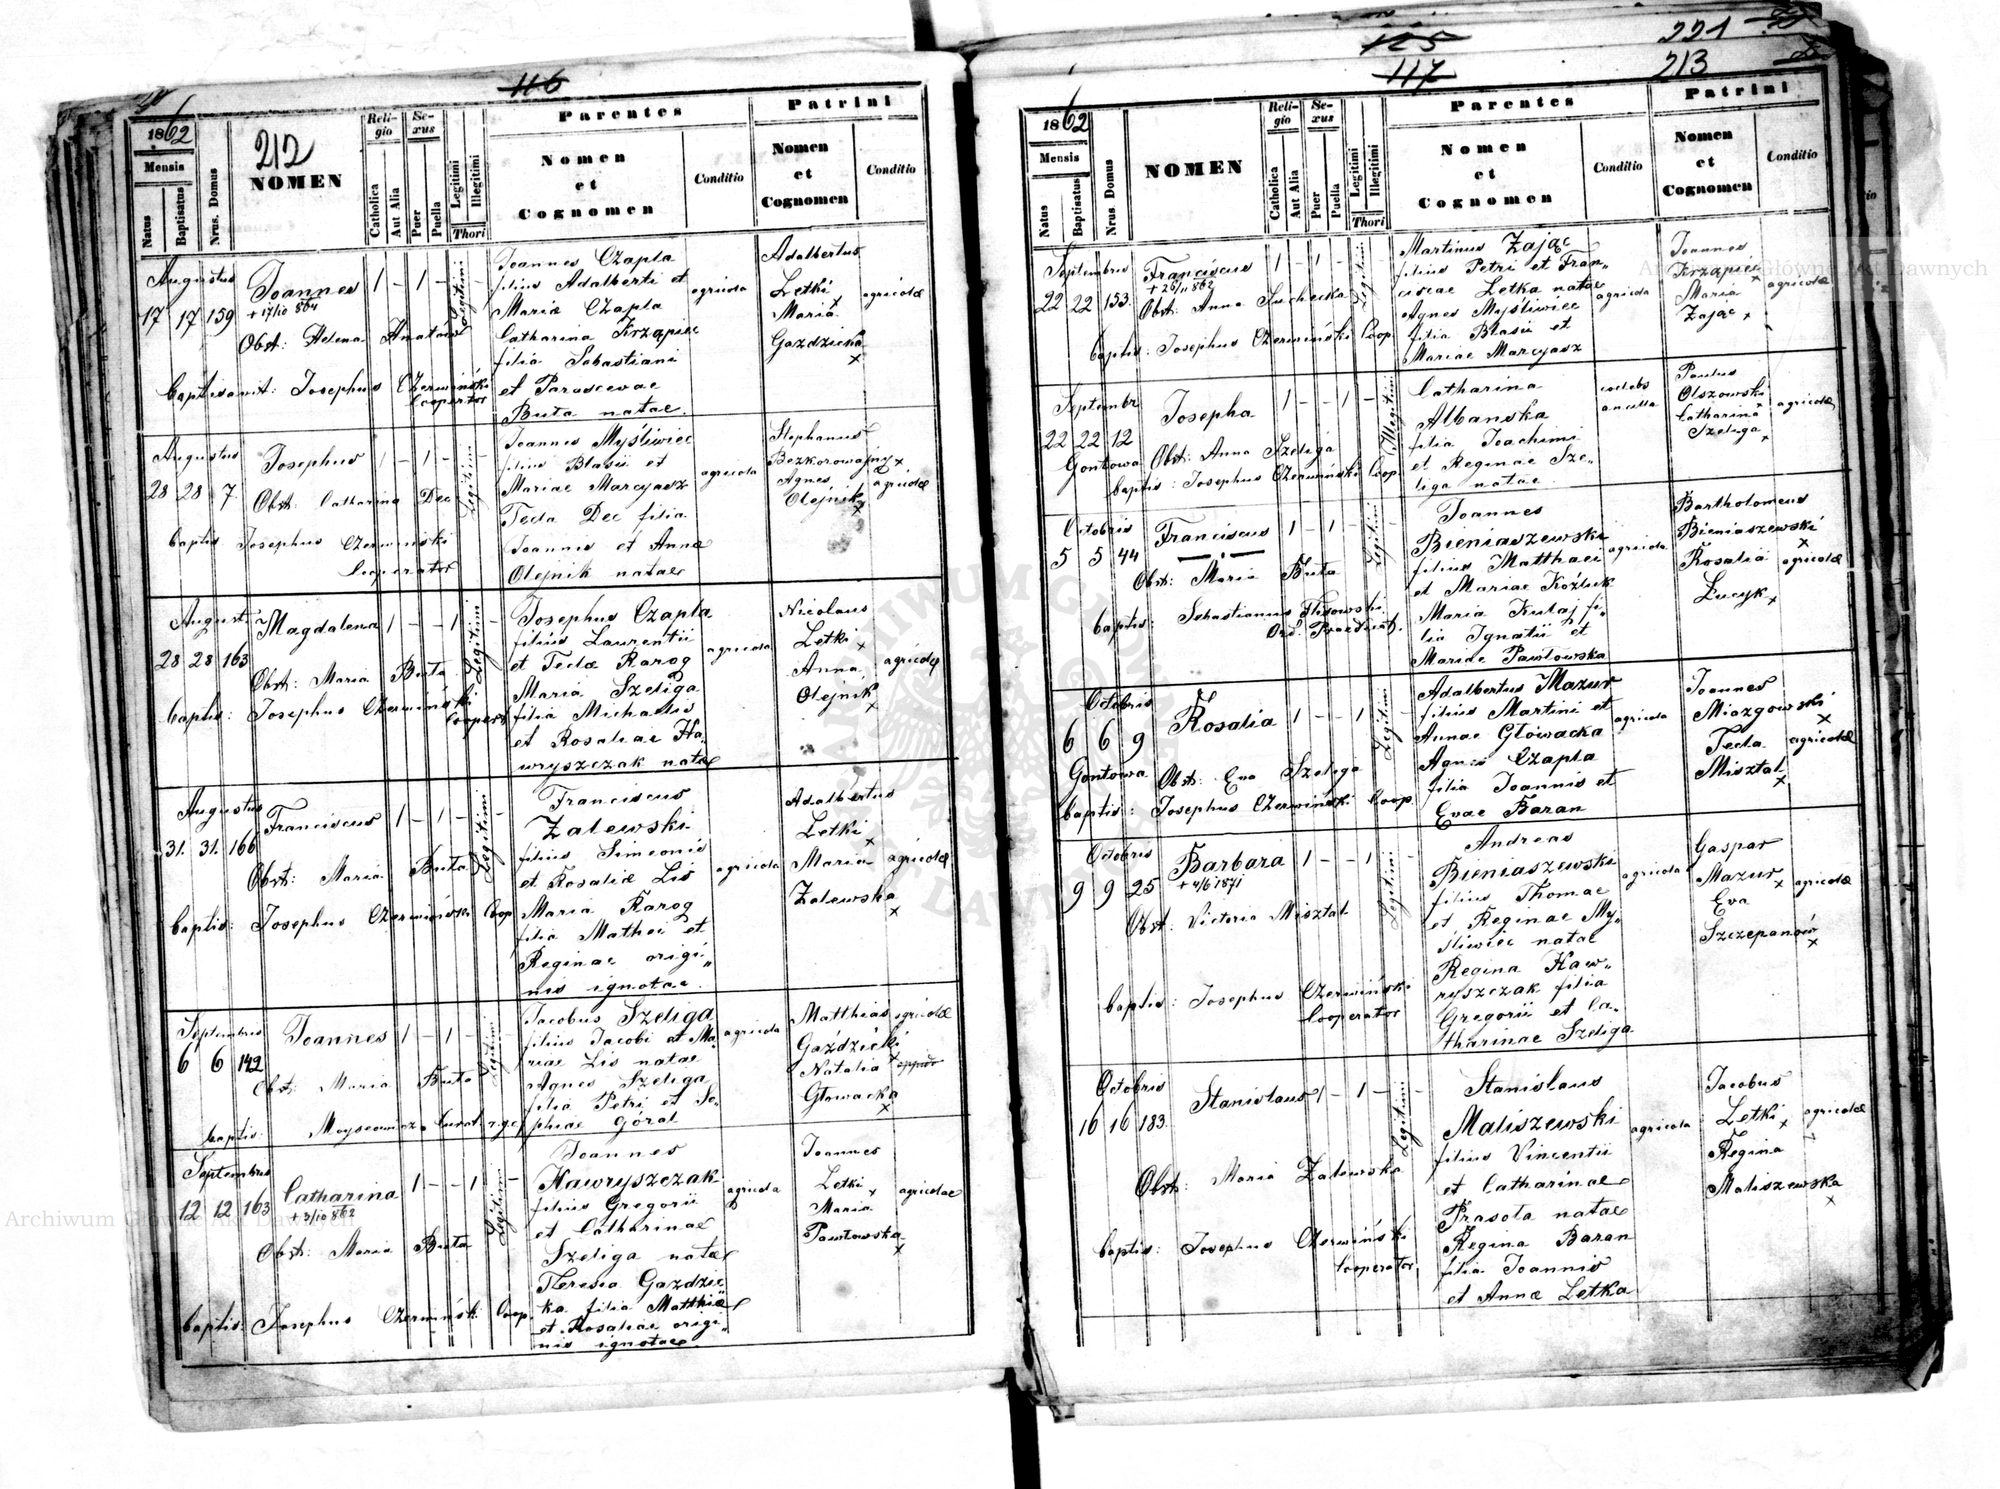 116
212
1862
Mensis
Natus
Baptisatus
Nrus. Domus
NOMEN
Reli-
gio
Catholica
Aut Alia
Se-
xus
Puer
Puella
Legitimi
Illegitimi
Thori
Parentes
Nomen
et
Cognomen
Conditio
Patrini
Nomen
et
Cognomen
Conditio
Augustus
17 17 159
Joannes 1 – 1 – Legitimi
+ 17/10 864
Obst: Helena
baptisavit: Josephus Czerwiński
Cooperator
Joannes Czapla
filius Adalberti et
Mariæ Czapla
Catharina Krzapiec
filia Sebastiani
et Parascevae
Buta natae.
agricola
Adalbertus
Letki x
Maria
Gazdzicka x
agricolæ
Augustus
28 28 7
Josephus 1 – 1 – Legitimi
Obst: Catharina Dec
baptis Josephus Czerwiński
Cooperator
Joannes Myśliwiec
filius Blasii et
Mariae Marcyasz
Tecla Dec filia
Joannis et Annæ
Olejnik natae
agricola
Stephanus
Bezkorowajny x
Agnes
Olejnik x
agricolæ
August
28 28 163
Magdalena 1 – – 1 Legitimi –
Obst: Maria Buta
baptis: Josephus Czerwiński
Cooperat
Josephus Czapla
filius Laurentii
et Teclæ Rarog
Maria Szeliga
filia Michaelis
et Rosaliae Ha-
wryszczak natæ
agricola
Nicolaus
Letki x
Anna
Olejnik x
agricolæ
Augustus
31. 31. 166
Franciscus 1 – 1 – Legitimi –
Obst: Maria Buta
baptis: Josephus Czerwiński Coop
Franciscus
Zalewski
filius Simeonis
et Rosaliæ Lis
Maria Rarog
filia Mathei et
Reginae origi„
nis ignotae.
agricola
Adalbertus
Letki x
Maria
Zalewska x
agricolæ
Septembris
6 6 142
Joannes 1 – 1 – Legitimi
Obst: Maria Buta
baptis: Curat. r.g.c.
Jacobus Szeliga
filius Jacobi et Ma-
riae Lis natae
Agnes Szeliga
filia Petri et So-
phiae Góral
agricola
Matthias agricolæ
Gaździcki x
Natalia
Głowacka x
Septembris
12 12 163
Catharina 1 – – 1 Legitimi –
+ 3/10 862
Obst: Maria Buta
baptis: Josephus Czerwiński Coop.
Joannes
Hawryszczak
filius Gregorii
et Catharinae
Szeliga natæ
Theresia Gazdzic
ka filia Matthiæ
et Rosaliae origi„
nis ignotae
agricola
Joannes
Letki x
Maria
Pawłowska x
agricolae
125
117
221
213
1862
Mensis
Natus
Baptisatus
Nrus. Domus
NOMEN
Reli-
gio
Catholica
Aut Alia
Se-
xus
Puer
Puella
Legitimi
Illegitimi
Thori
Parentes
Nomen
et
Cognomen
Conditio
Patrini
Nomen
et
Cognomen
Conditio
Septembris
22 22 153.
Franciscus 1 – 1 – Legitimi
+ 26/11 862
Obst: Anna Suchecka
baptis: Josephus Czerwiński Coop.
Martinus Zając
filius Petri et Fran„
ciscae Letka natae
Agnes Myśliwiec
filia Blasii et
Mariae Marcyasz
agricola
Joannes
Krzapiec x
Maria
Zając x
agricolæ
Septembr
22 22 12
Gontowa
Josepha 1 – – 1 – Illegitimi
Obst: Anna Szeliga
baptis: Josephus Czerwiński Coop
Catharina
Albanska
filia Joachimi
et Reginae Sze„
liga natae.
ancilla
Paulus
Olszowski x
Catharina
Szeliga x
agricolæ
Octobris
5 5 44
Franciscus 1 – 1 – Legitimi
Obst: Maria Buta
baptis: Sebastianus
Ord. Praedicat.
Joannes
Bieniaszewski
filius Matthaei
et Mariae Koźluk
Maria Kutaj fi„
lia Ignatii et
Mariae Pawłowska
agricola
Bartholomeus
Bieniaszewski x
Rosalia
Łucyk x
agricolæ
Octobris
6 6 9
Gontowa
Rosalia 1 – – 1 Legitimi –
Obst: Eva Szeliga
baptis: Josephus Czerwiński Coop.
Adalbertus Mazur
filius Martini et
Annae Głowacka
Agnes Czapla
filia Joannis et
Evae Baran
agricola
Joannes
Miozgowski x
Tecla
Misztal x
agricolæ
Octobris
9 9 25
Barbara 1 – – 1 Legitimi –
+ 4/6 1871
Obst. Victoria Misztal
baptis: Josephus Czerwiński
Cooperator
Andreas
Bieniaszewski
filius Thomae
et Reginae My„
śliwiec natae
Regina Haw„
ryszczak filia
Gregorii et Ca„
tharinae Szeliga
agricola
Gaspar
Mazur x
Eva
Szczepanów x
agricolæ
Octobris
16 16 183.
Stanislaus 1 – 1 – Legitimi
Obst: Maria Zalewska
baptis: Josephus Czerwiński
Cooperator,
Stanislaus
Maliszewski
filius Vincentii
et Catharinae
Prasoła natae
Regina Baran
filia Joannis
et Annæ Letka
agricola
Jacobus
Letki x
Regina
Maliszewska x
agricolæ
Archiwum Główne Akt Dawnych
Archiwum Główne Akt Dawnych
ARCHIWUM GŁÓWNE AKT DAWNYCH